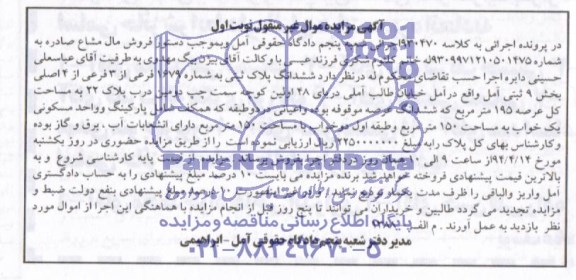 آگهی مزایده اموال غیر منقول نوبت اول
در پرونده اجرائی به کلاسه ۹۳۰۴۷۰ پنجم دادگاه حقوقی آمل وبموجب دستور فروش مال مشاع صادره به
شماره ۹۳۰۹۹۷۱۲۱۰۵۰۱۴۷۵ له خانم کلثوم شکری فرزند با وکالت آقای بیک مهدوی به طرفیت آقای عباسعلی
حسینی دایره اجرا حسب تقاضای محکوم له درنظر دارد ششدانگ پلاک ثبتی به شماره ۱۶۷۹ فرعی از ۳ فرعی از ۴ اصلی
بخش ۹ ثبتی آمل واقع در آمل خیابان طالب آملی دریای ۲۸ اولین کوچه سمت چپ دومین درب پلاک ۲۲ به مساحت
کل عرصه ۱۹۵ متر مربع که ششدانگ عرصه مرقوفه بوده واعیانی دو طبقه که همکف شامل پارکینگ وواحد مسکونی
یک خواب به مساحت ۱۵۰ متر مربع وطبقه اول دوخواب با مساحت ۱۵۰ متر مربع دارای انشعابات آب ، برق و گاز بوده
وکارشناس بهای کل پلاک رابه مبلغ ۲۲۵۰۰۰۰۰۰۰ ریال ارزیابی نموده است را از طریق مزایده حضوری در روز یکشنبه
مورخ ۹۴/۴/۱۴ از ساعت ۹ الی ۱۰ همان روز در اجرا بفروش برساند مزایده از قیمت پایه کارشناسی شروع و به
بالاترین قیمت پیشنهادی فروخته خواهد شد برنده مزایده می بایست ۱۰ درصد مبلغ پیشنهادی را به حساب دادگستری
آمل واریز والباقی را ظرف مدت یکماه تودیع نماید درصد مبلغ پیشنهادی بنفع دولت ضبط و
مزایده تجدید می گردد طالبین و خریداران می توانند تا پنج روز قبل از انجام مزایده با هماهنگی این اجرا از اموال مورد
نظر بازدید به عمل آورند . م الف
مدیر دفتر شعبه پنجم دادگاه حقوقی آمل - ابراهیمی
ParsNamadData
پایگاه اطلاع رسانی مناقصه و مزایده
۰۲۱-۸۸۳۴۹۶۷۰-۵